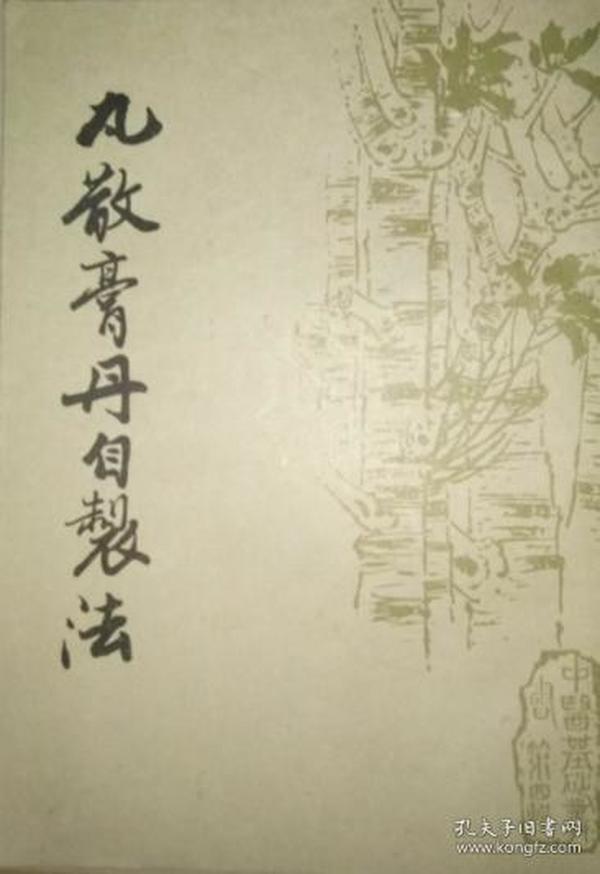 丸散膏丹自製法
中醫基礎叢
第四
孔夫子旧书网
www.kongfz.com